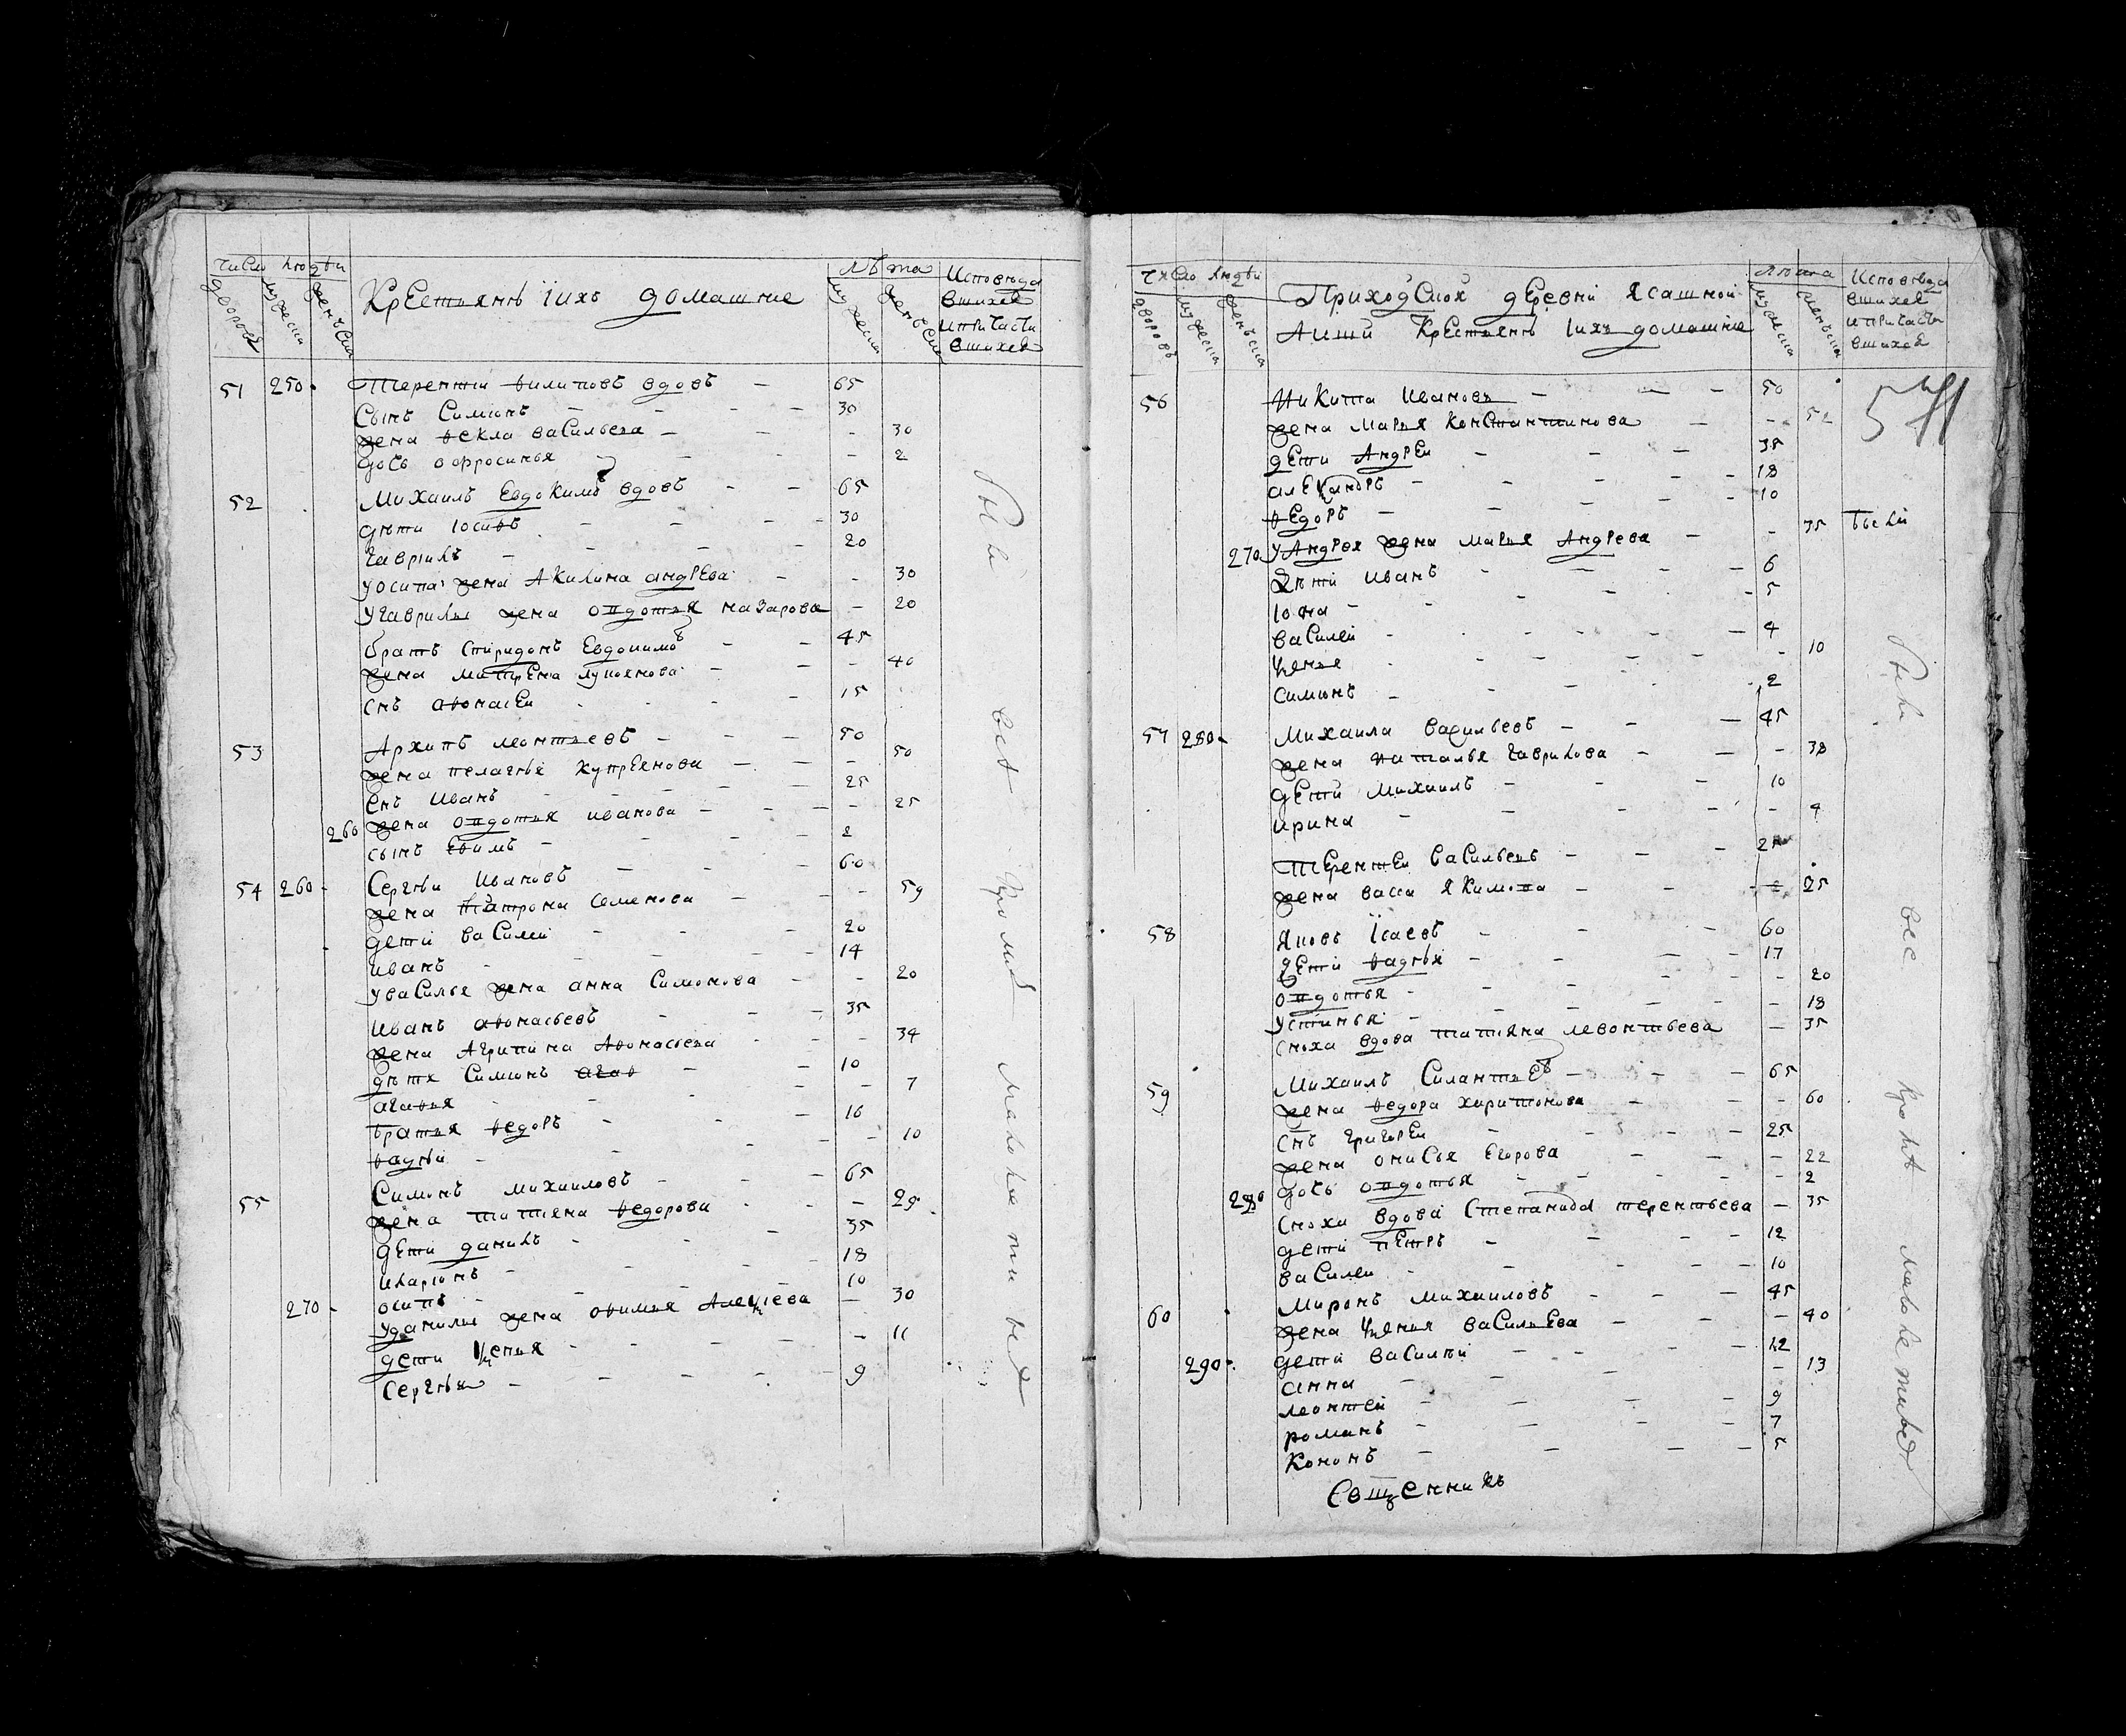 число людѣи
дворовъ мужеска женъска
Крестьянъ їихъ домашние
лѣта
мужеска женъска
Исповѣда
вшихся
ипричасти
вшихся
51 250 Терентїи Филиповъ вдовъ — 65
Сынъ Симионъ — 30
жена Фекла васильева — 30
дочь офросинья — 2
52 Михаилъ Евдокимовъ вдовъ — 65
дѣти Іосифъ — 30
Гаврилъ — 20
уосипа жена Акилина андрѣева — 30
угаврилы жена овдотья назарова — 20
братъ спиридонъ Евдокимовъ — 45
жена матрена лукоянова — 40
снъ афонасеи — 15
53 Архипъ леонтьевъ — 50
жена пелагѣя купреянова — 50
снъ иванъ — 25
260 жена овдотья иванова — 25
сынъ Ефимъ — 2
54 260 Сергѣи Ивановъ — 60
жена матрона семенова — 59
дети василеи — 20
иванъ — 14
увасилья жена анна симонова — 20
Иванъ афонасьевъ — 35
жена Агрипина Афонасьева — 34
дѣти Симионъ агаф — 10
агафья — 7
братья федоръ — 16
фадѣи — 10
55 Симонъ михаиловъ — 65
жена татьяна федорова — 29
дети данилъ — 35
иларионъ — 18
осипъ — 10
270 уданилы жена офимья Алексиева — 30
дети ксенья — 11
Сергѣи — 9
Были всѣ кромѣ малолетныхъ
число людѣи
дворовъ мужеска женъска
Приходской деревни Ясашной
Аити Крестьянъ їихъ домашние
лѣта
мужеска женъска
Исповѣда
вшихся
ипричасти
вшихся
56 Никита Ивановъ — 50
жена марья Константинова — 52
дети Андреи — 35
александръ — 18
федоръ — 10
270 уАндрея жена марья Андреева — 35 были
дѣти иванъ — 6
Іона — 5
василеи — 4
ксенья — 10
симионъ — 2
57 280 Михаила васильевъ — 45
жена наталья гаврилова — 38
дети михаилъ — 10
ирина — 4
Терентеи васильевъ — 25
жена васса якимова — 25
58 яковъ Їсаевъ — 60
дети фадѣи — 17
овдотья — 20
устинья — 18
сноха вдова татьяна левонтьева — 35
59 Михаилъ Силантьевъ — 65
жена федора харитонова — 60
снъ григореи — 25
жена онисья егорова — 22
дочь овдотья — 2
280 сноха вдова степанида терентьева — 35
дети петръ — 12
василеи — 10
60 миронъ михаиловъ — 45
жена ксенья васильева — 40
290 дети василѣи — 12
анна — 13
леонтеи — 9
романъ — 7
кононъ — 5
Были все кромѣ малолетныхъ
Сощенникъ